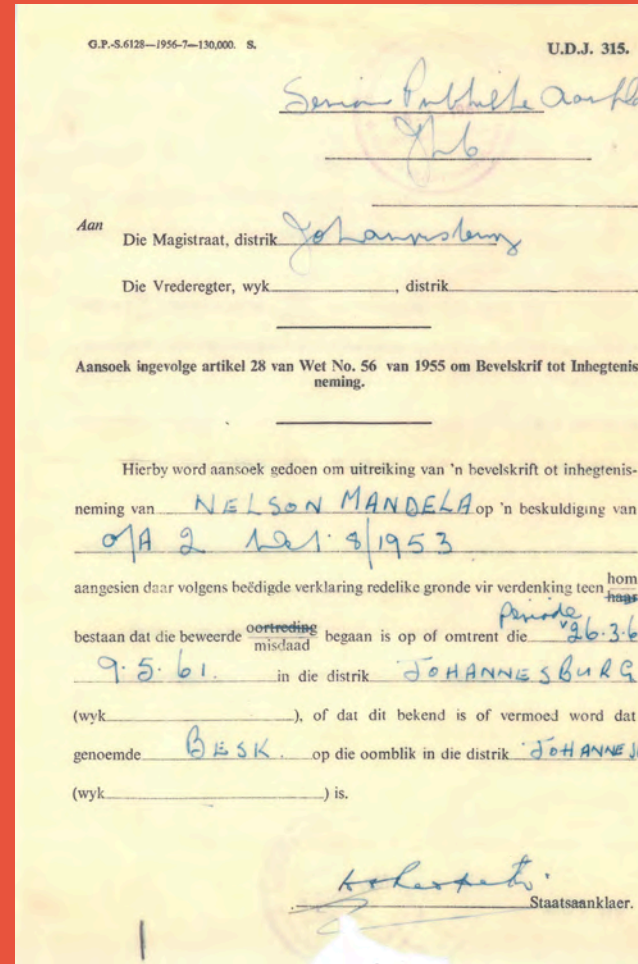 G.P.-S.6128—1956-7—130,000. S.
U.D.J. 315.
Senior Publieke
Jhb
Aan
Die Magistraat, distrik Johannesburg
Die Vrederegter, wyk , distrik
Aansoek ingevolge artikel 28 van Wet No. 56 van 1955 om Bevelskrif tot Inhegtenis
neming.
Hierby word aansoek gedoen om uitreiking van 'n bevelskrift ot inhegtenis-
neming van NELSON MANDELA op 'n beskuldiging van
o/A 2 Wet 8/1953
aangesien daar volgens beëdigde verklaring redelike gronde vir verdenking teen hom
haar
periode
bestaan dat die beweerde oortreding begaan is op of omtrent die 26.3.6
misdaad
9.5.61. in die distrik JOHANNESBURG
(wyk ), of dat dit bekend is of vermoed word dat
genoemde BESK. op die oomblik in die distrik JOHANNES
(wyk ) is.
Staatsaanklaer.